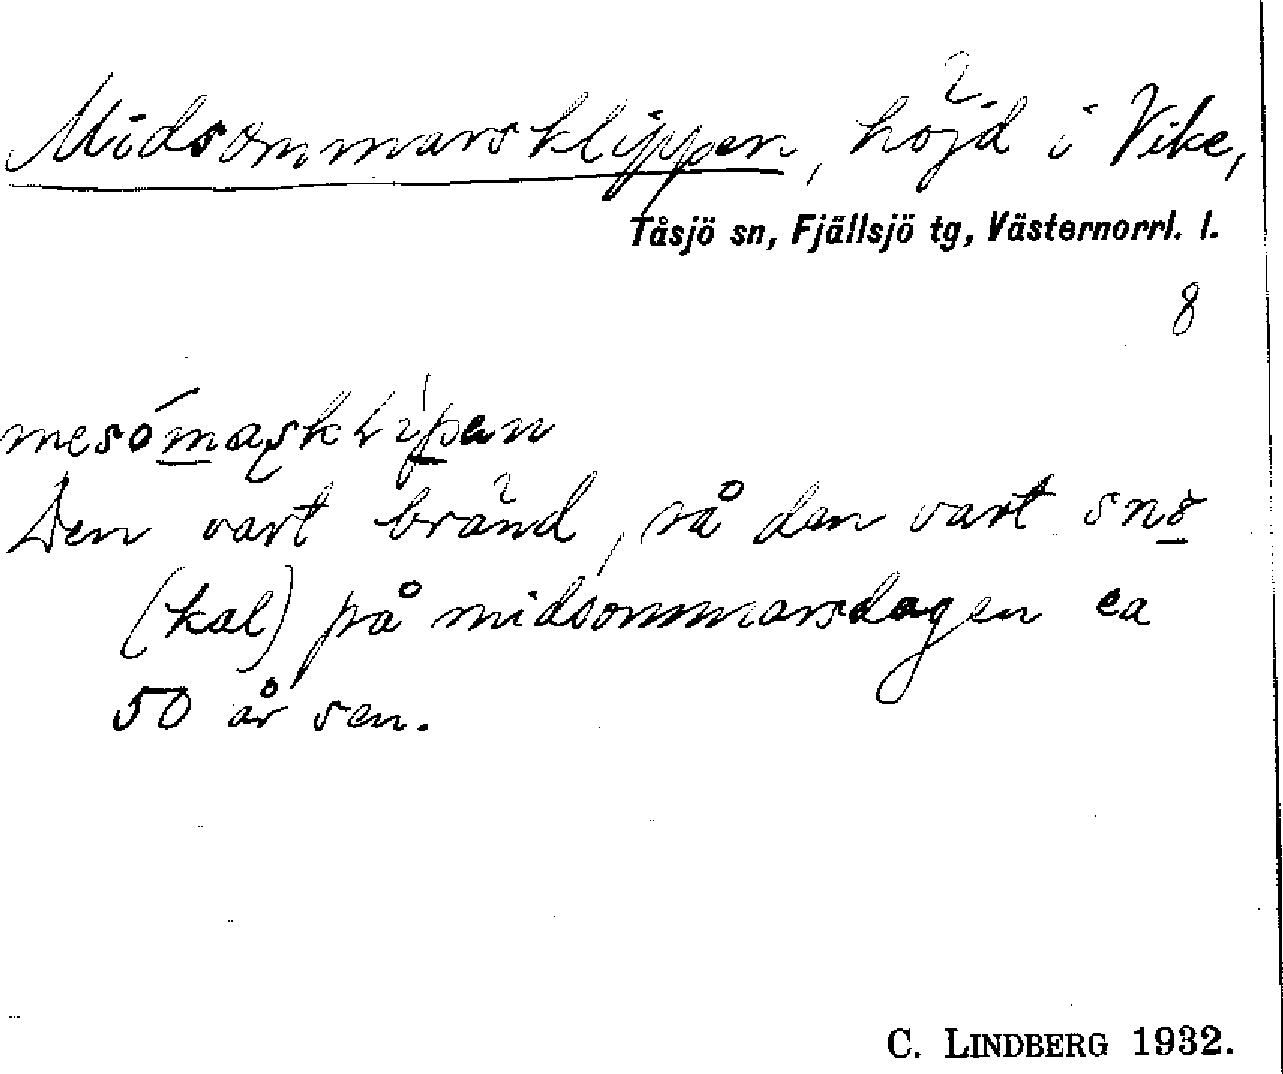 Midsommarsklippen, höjd i Vike,
Tåsjö sn, Fjällsjö tg, Västernorrl. l.
8
Den vart bränd, så den vart snö
(kal) på midsommarsdagen ca
50 år sen.
C. LINDBERG 1932.